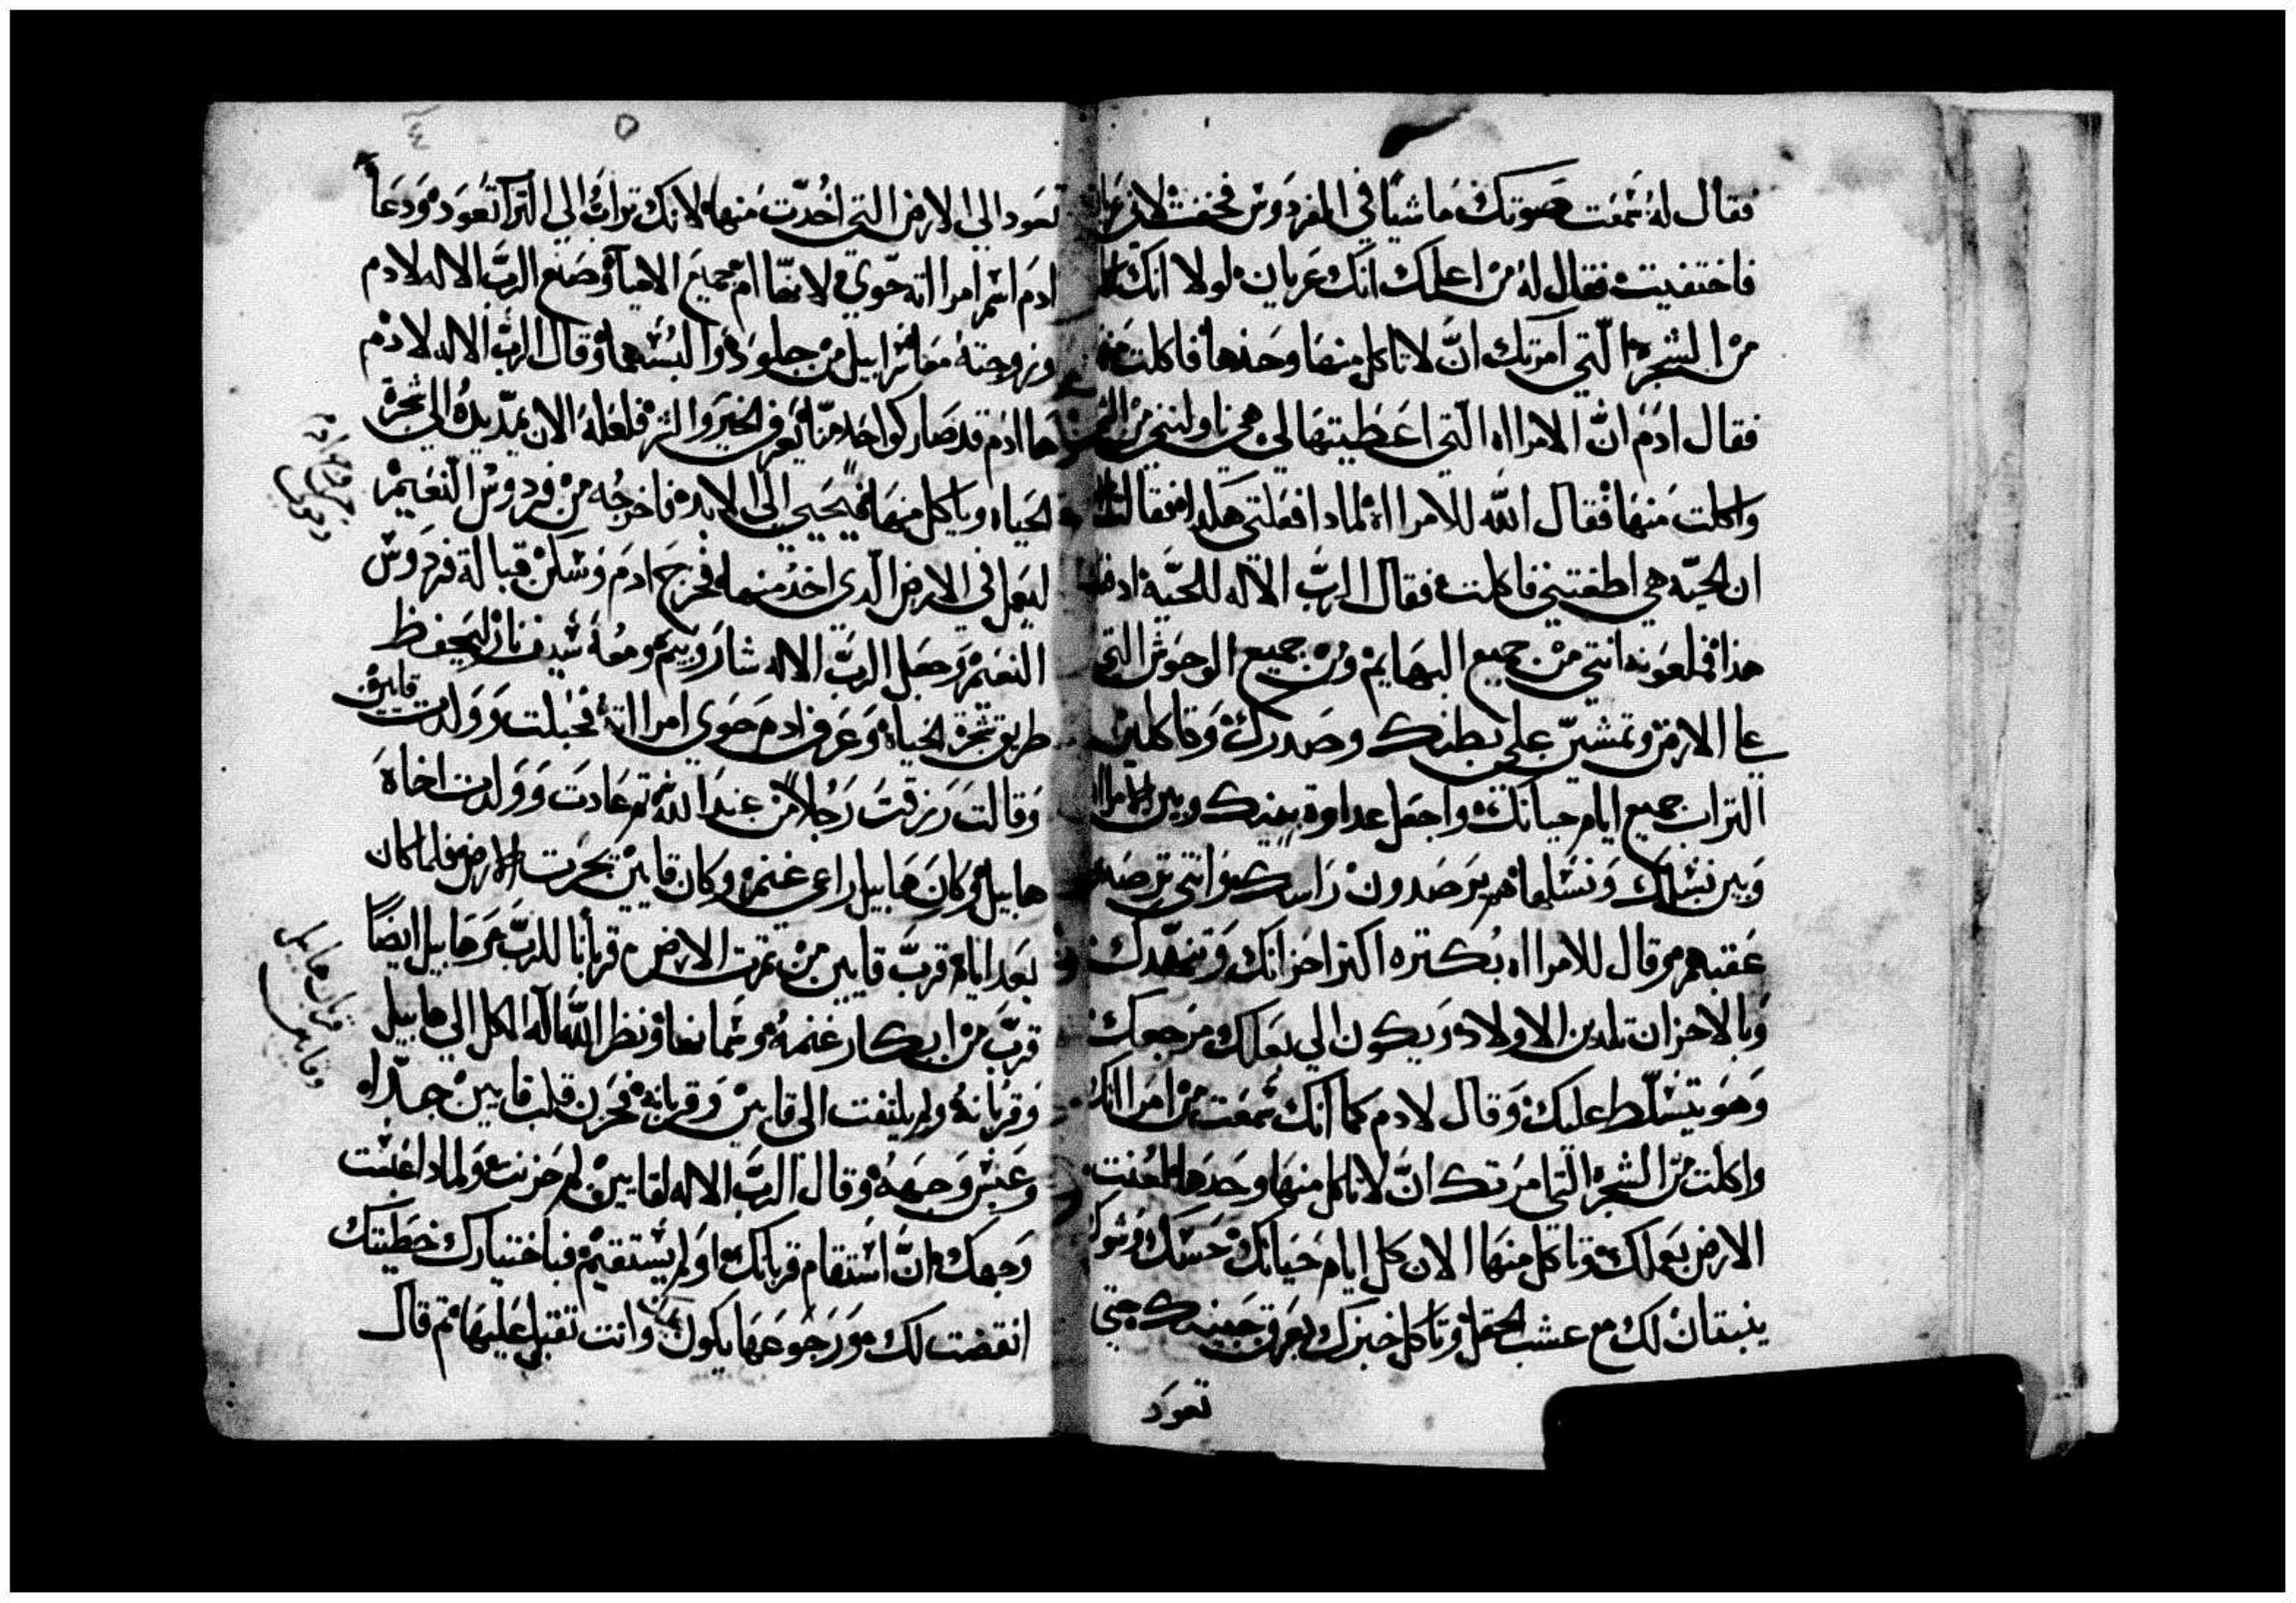 فقال له سمعت صوتك ماشيًا في الفردوس فخفت لاني
فاختفيت فقال له من اعلمك انك عريان لولا انك
من الشجرة التي امرتك انّ لا تاكل منها وحدها فاكلت
فقال ادم انّ الامرااه التي اعطيتها لي هي ناولتني من
واكلت منها فقال الله للامرااة لمادا فعلتي هكدا فقالت
ان الحيّه هي اطغتني فاكلت فقال الربّ الاله للحيّة اد
هدا فملعونه انتي من جميع البهايم ومن جميع الوحوش التي
علي الارض وتمشيّ علي بطنك وصدرك وتاكلين
التراب جميع ايام حياتك واجعل عداوة بينك وبين الامرااه
وبين نسلك ونسلها هم يترصدون راسك وانتي ترصدي
عقبهم وقال للامرااه بكتره اكتر احزانك وتنهّدك
وبالاحزان تلدين الاولاد ويكون الي بعلك مرجعك
وهو يتسلّط عليك وقال لادم كما انك سمعت من امرااتك
واكلت من الشجره التي امرتك انّ لا تاكل منها وحدها لعنت
الارض بعملك وتاكل منها الان كل ايام حياتك حسك وشوك
ينبتان لك مع عشب الحقل وتاكل خبزك بعرق جبينك حتي
تعود
٥ ٤
تعود الي الارض التي اخدت منها لانك تراب الي التراب تعود ودعا
ادم اسم امرااته حوّي لانها ام جميع الاحيا وصنع الربّ الاله لادم
وزوجته سرابيل من جلود والبسهما وقال الربّ الاله لادم
ها ادم قد صار كواحد منّا يعرف الخير والشر فلعله الان يمدّ يده الي شجرة
الحياه وياكل منها فيحيي الي الابد فاخرجه من فردوس النعيم
ليعمل في الارض الّدي اخد منها فخرج ادم وسكن قبالة فردوس
النعيم وجعل الربّ الاله شاروبيم ومعه سيف نار ليحفظ
طريق شجرة الحياة وعرف ادم حوي امرااته فحبلت وولدت قايين
وقالت رزقت رجلاً من عند الله ثم عادت وولدت اخاه
هابيل وكان هابيل راعي غنم وكان قايين يحرت الارض فلما كان
بعد ايام قربّ قايين من تمرت الارض قربانا للربّ وهابيل ايضاً
قربّ من ابكار غنمه وسمانها ونظر الله اله الكل الي هابيل
وقربانه ولم يلتفت الي قايين وقربانه فحزن قلب قايين جدّاه
وعبس وجهه وقال الربّ الاله لقايين لم حزنت ولمادا عبست
وجهك انّ استقام قربانك او لم يستقيم فباختيارك خطيتك
انقضت لك ورجوعها يكون وانت تقبل عليها ثم قال
قربان هابيل
وقايين